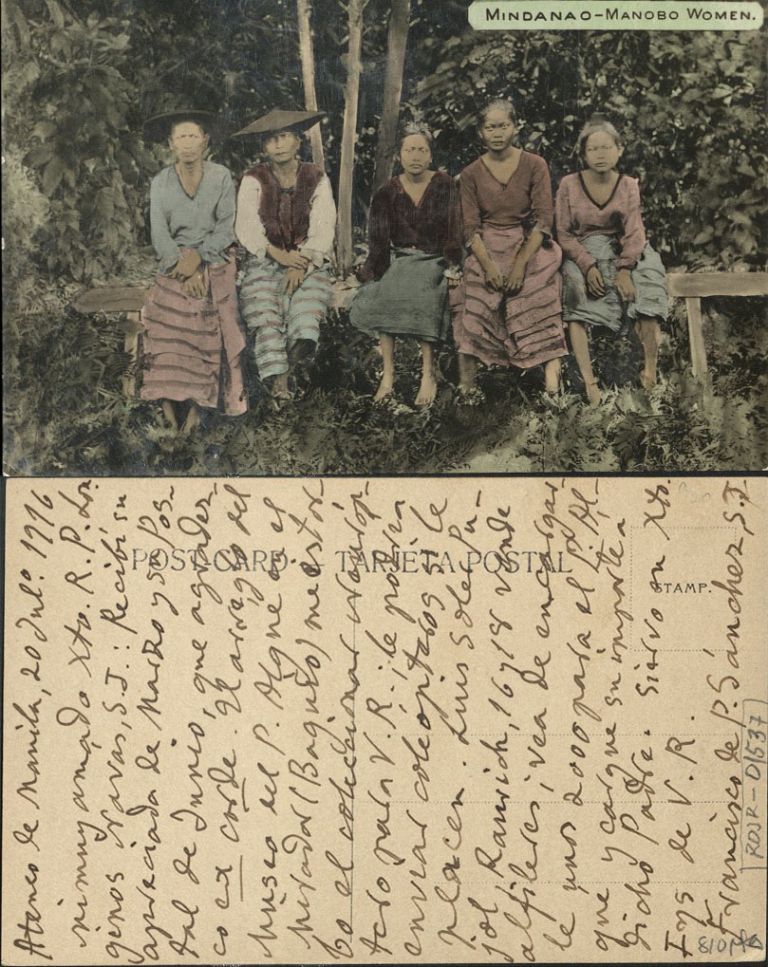 MINDANAO–MANOBO WOMEN.
POST-CARD – TARJETA POSTAL
STAMP.
Ateneo de Manila, 20 Jul.º 1916
mi muy amado Xto. R. P. Lon
ginos Navas, S.J.: Recibí su
apreciada de Marzo y su Pos-
tal de Junio, que agradez-
co ex corde. El arreglo del
Museo del P. Algué en el
Mirador (Baguio) me estor-
bó el coleccionar
tero para V. R.; le podría
enviar coleópteros si le
placen. Luis Soler Pu-
jol, Raurich, 16 y 18 vende
alfileres; vea de encargar-
le unos 2000 para el P. Al-
gué y cargue su importe a
dicho Padre. Siervo en Xto.
I ys de V. R.
Francisco de P. Sánchez, S.J
ROJR-D/537